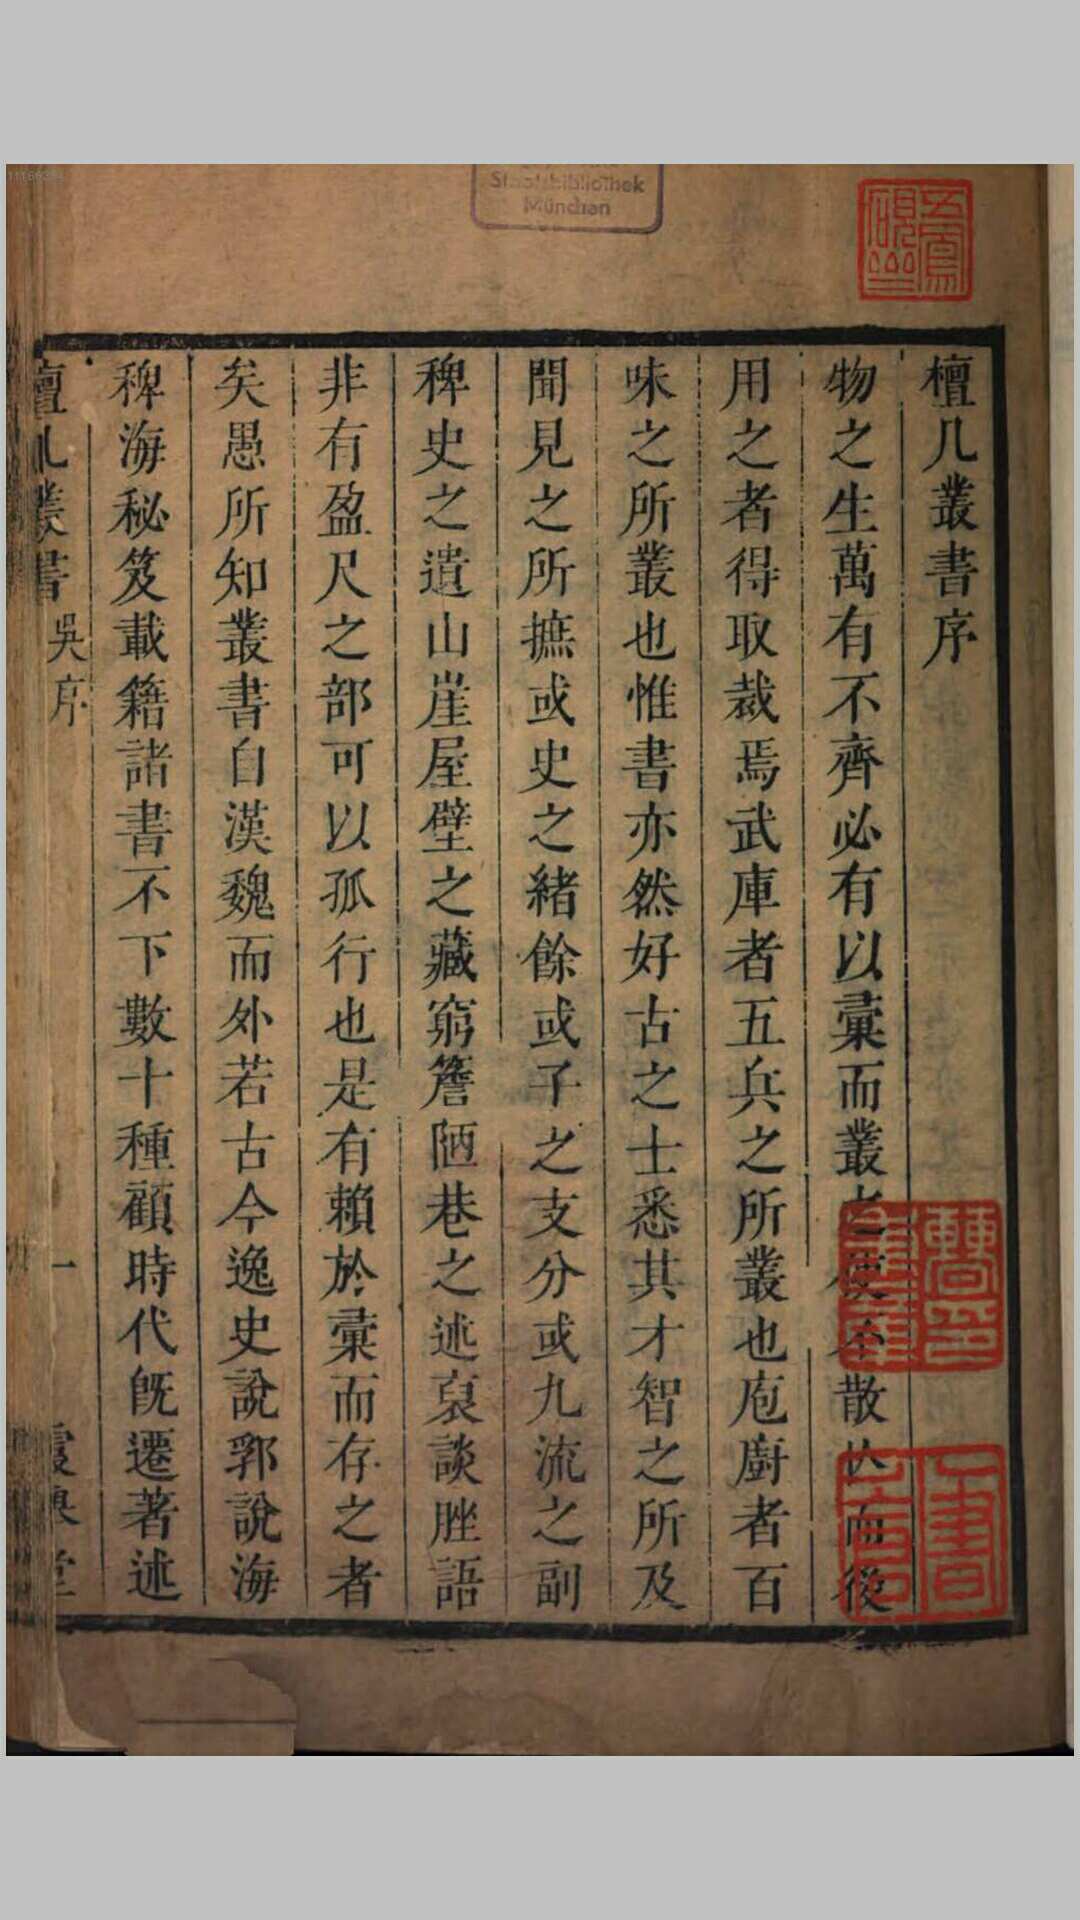 檀几叢書序
物之生萬有不齊必有以彙而叢之使不散佚而後
用之者得取裁焉武庫者五兵之所叢也庖廚者百
味之所叢也惟書亦然好古之士悉其才智之所及
聞見之所摭或史之緒餘或子之支分或九流之副
稗史之遺山崖屋壁之藏窮簷陋巷之述裒談脞語
非有盈尺之部可以孤行也是有賴於彙而存之者
矣愚所知叢書自漢魏而外若古今逸史說郛說海
稗海秘笈載籍諸書不下數十種顧時代旣遷著述
檀几叢書 吳序 一 霞舉堂
Staatsbibliothek
München